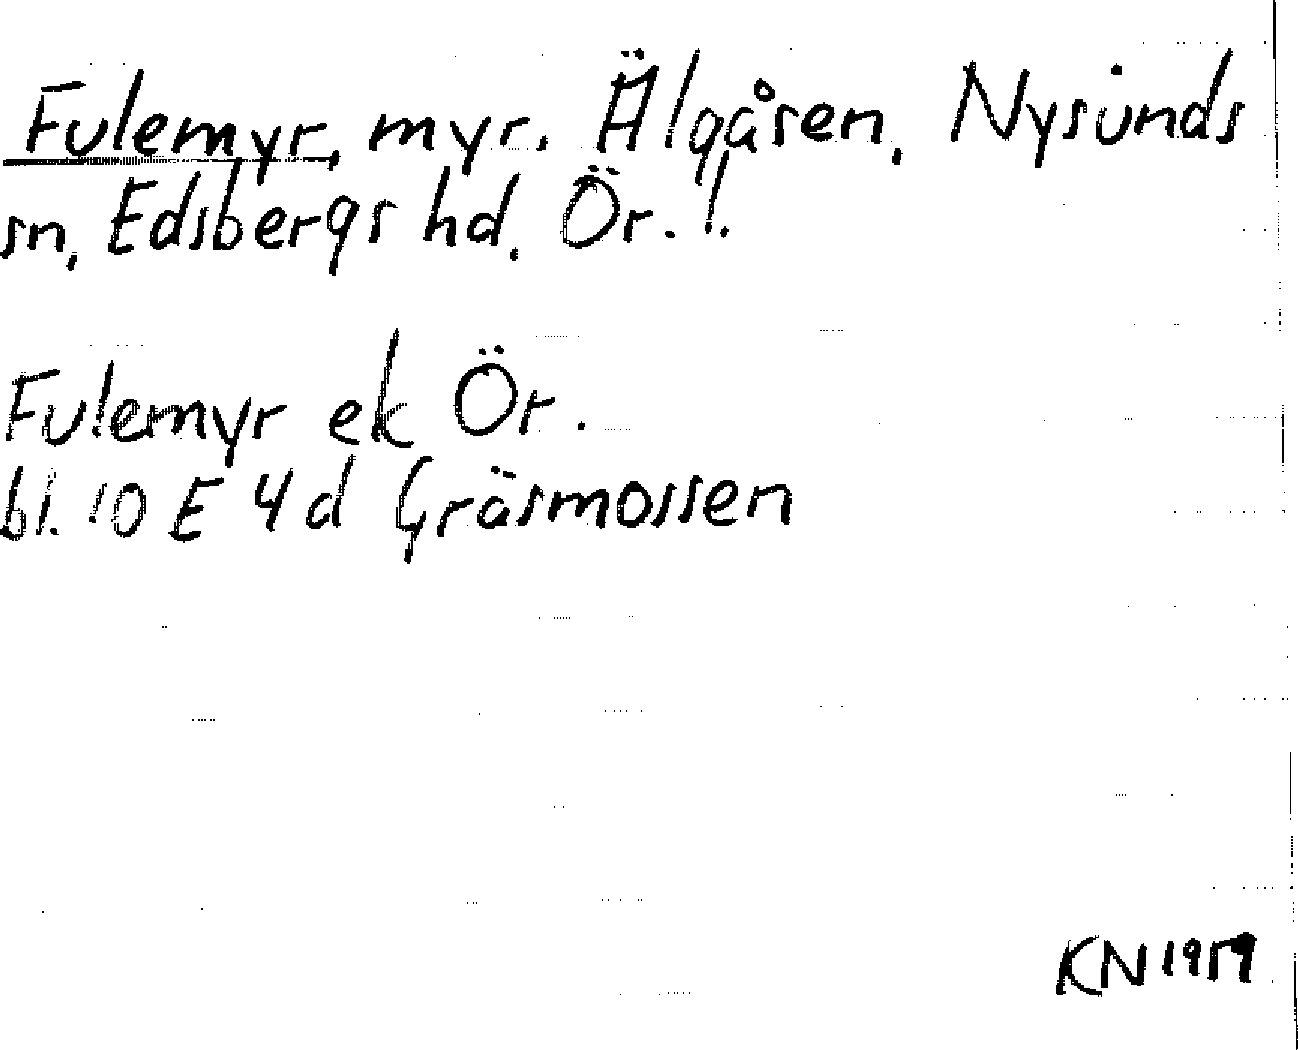 Fulemyr, myr. Älgåsen, Nysunds
sn, Edsbergs hd. Ör. !.
Fulemyr ek Ör.
bl. 10 E 4 d Gräsmossen
KN 1959